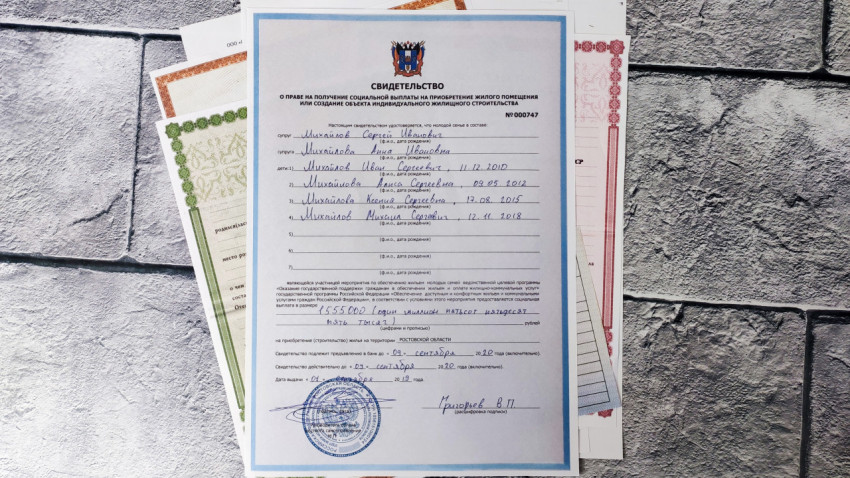 ООО «І
СВИДЕТЕЛЬСТВО
О ПРАВЕ НА ПОЛУЧЕНИЕ СОЦИАЛЬНОЙ ВЫПЛАТЫ НА ПРИОБРЕТЕНИЕ ЖИЛОГО ПОМЕЩЕНИЯ
ИЛИ СОЗДАНИЕ ОБЪЕКТА ИНДИВИДУАЛЬНОГО ЖИЛИЩНОГО СТРОИТЕЛЬСТВА
№ 000747
Настоящим свидетельством удостоверяется, что молодой семье в составе:
супруг Михайлов Сергей Иванович
(ф.и.о., дата рождения)
супруга Михайлова Анна Ивановна
(ф.и.о., дата рождения)
дети:1) Михайлов Иван Сергеевич, 11.12.2010
(ф.и.о., дата рождения)
2) Михайлова Алиса Сергеевна, 09.05.2012
(ф.и.о., дата рождения)
3) Михайлова Ксения Сергеевна, 17.08.2015
(ф.и.о., дата рождения)
4) Михайлов Михаил Сергеевич, 12.11.2018
(ф.и.о., дата рождения)
5)
(ф.и.о., дата рождения)
6)
(ф.и.о., дата рождения)
7)
(ф.и.о., дата рождения)
являющейся участницей мероприятия по обеспечению жильем молодых семей ведомственной целевой программы
«Оказание государственной поддержки гражданам в обеспечении жильем и оплате жилищно-коммунальных услуг»
государственной программы Российской Федерации «Обеспечение доступным и комфортным жильем и коммунальными
услугами граждан Российской Федерации», в соответствии с условиями этого мероприятия предоставляется социальная
выплата в размере
1 555 000 (один миллион пятьсот пятьдесят
пять тысяч) рублей
(цифрами и прописью)
на приобретение (строительство) жилья на территории РОСТОВСКОЙ ОБЛАСТИ
Свидетельство подлежит предъявлению в банк до «09» сентября 2020 года (включительно)
Свидетельство действительно до «09» сентября 2020 года (включительно)
Дата выдачи «01» сентября 2019 года
Григорьев В.П.
(расшифровка подписи)